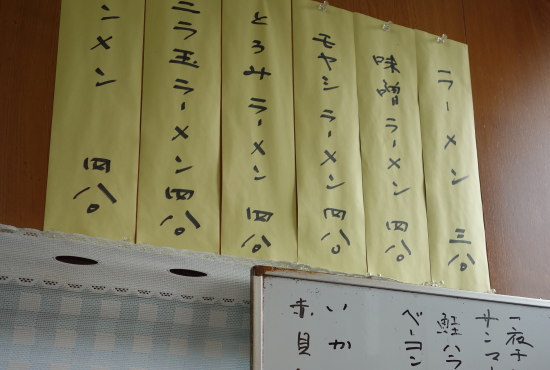 ラーメン 三八〇
味噌ラーメン 四八〇
モヤシラーメン 四八〇
とろみラーメン 四八〇
ニラ玉ラーメン 四八〇
ンメン 四八〇
一夜
サンマ
鮭ハラ
ベーコン
いか
赤貝